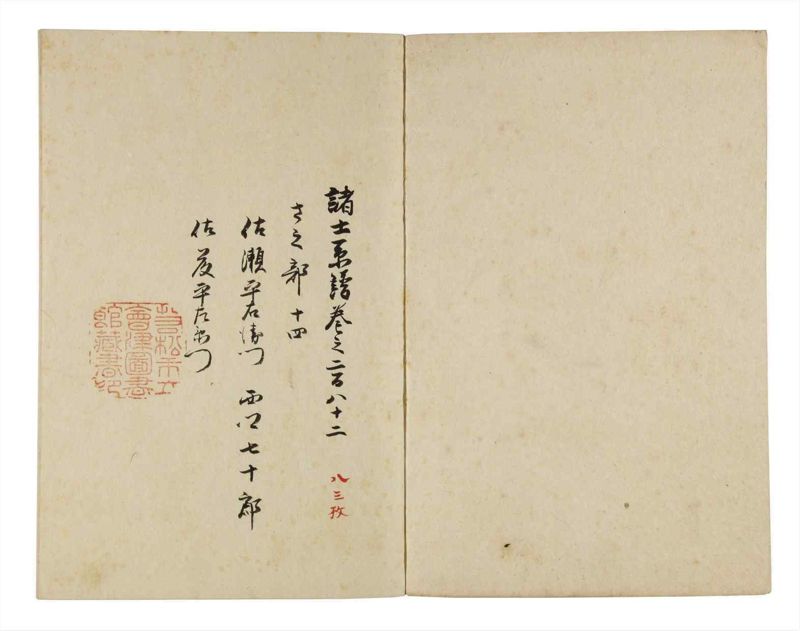 諸士系譜巻之二百八十二
八三枚
さ之部 十四
佐瀬平右衛門 西川七十郎
佐藤平左衛門
若松市立
會津圖書
館藏書印